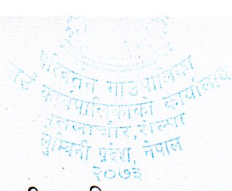 परिवर्तन गाउँपालिका
गाउँ कार्यपालिकाको कार्यालय
रोल्पा
लुम्बिनी प्रदेश, नेपाल
२०७३